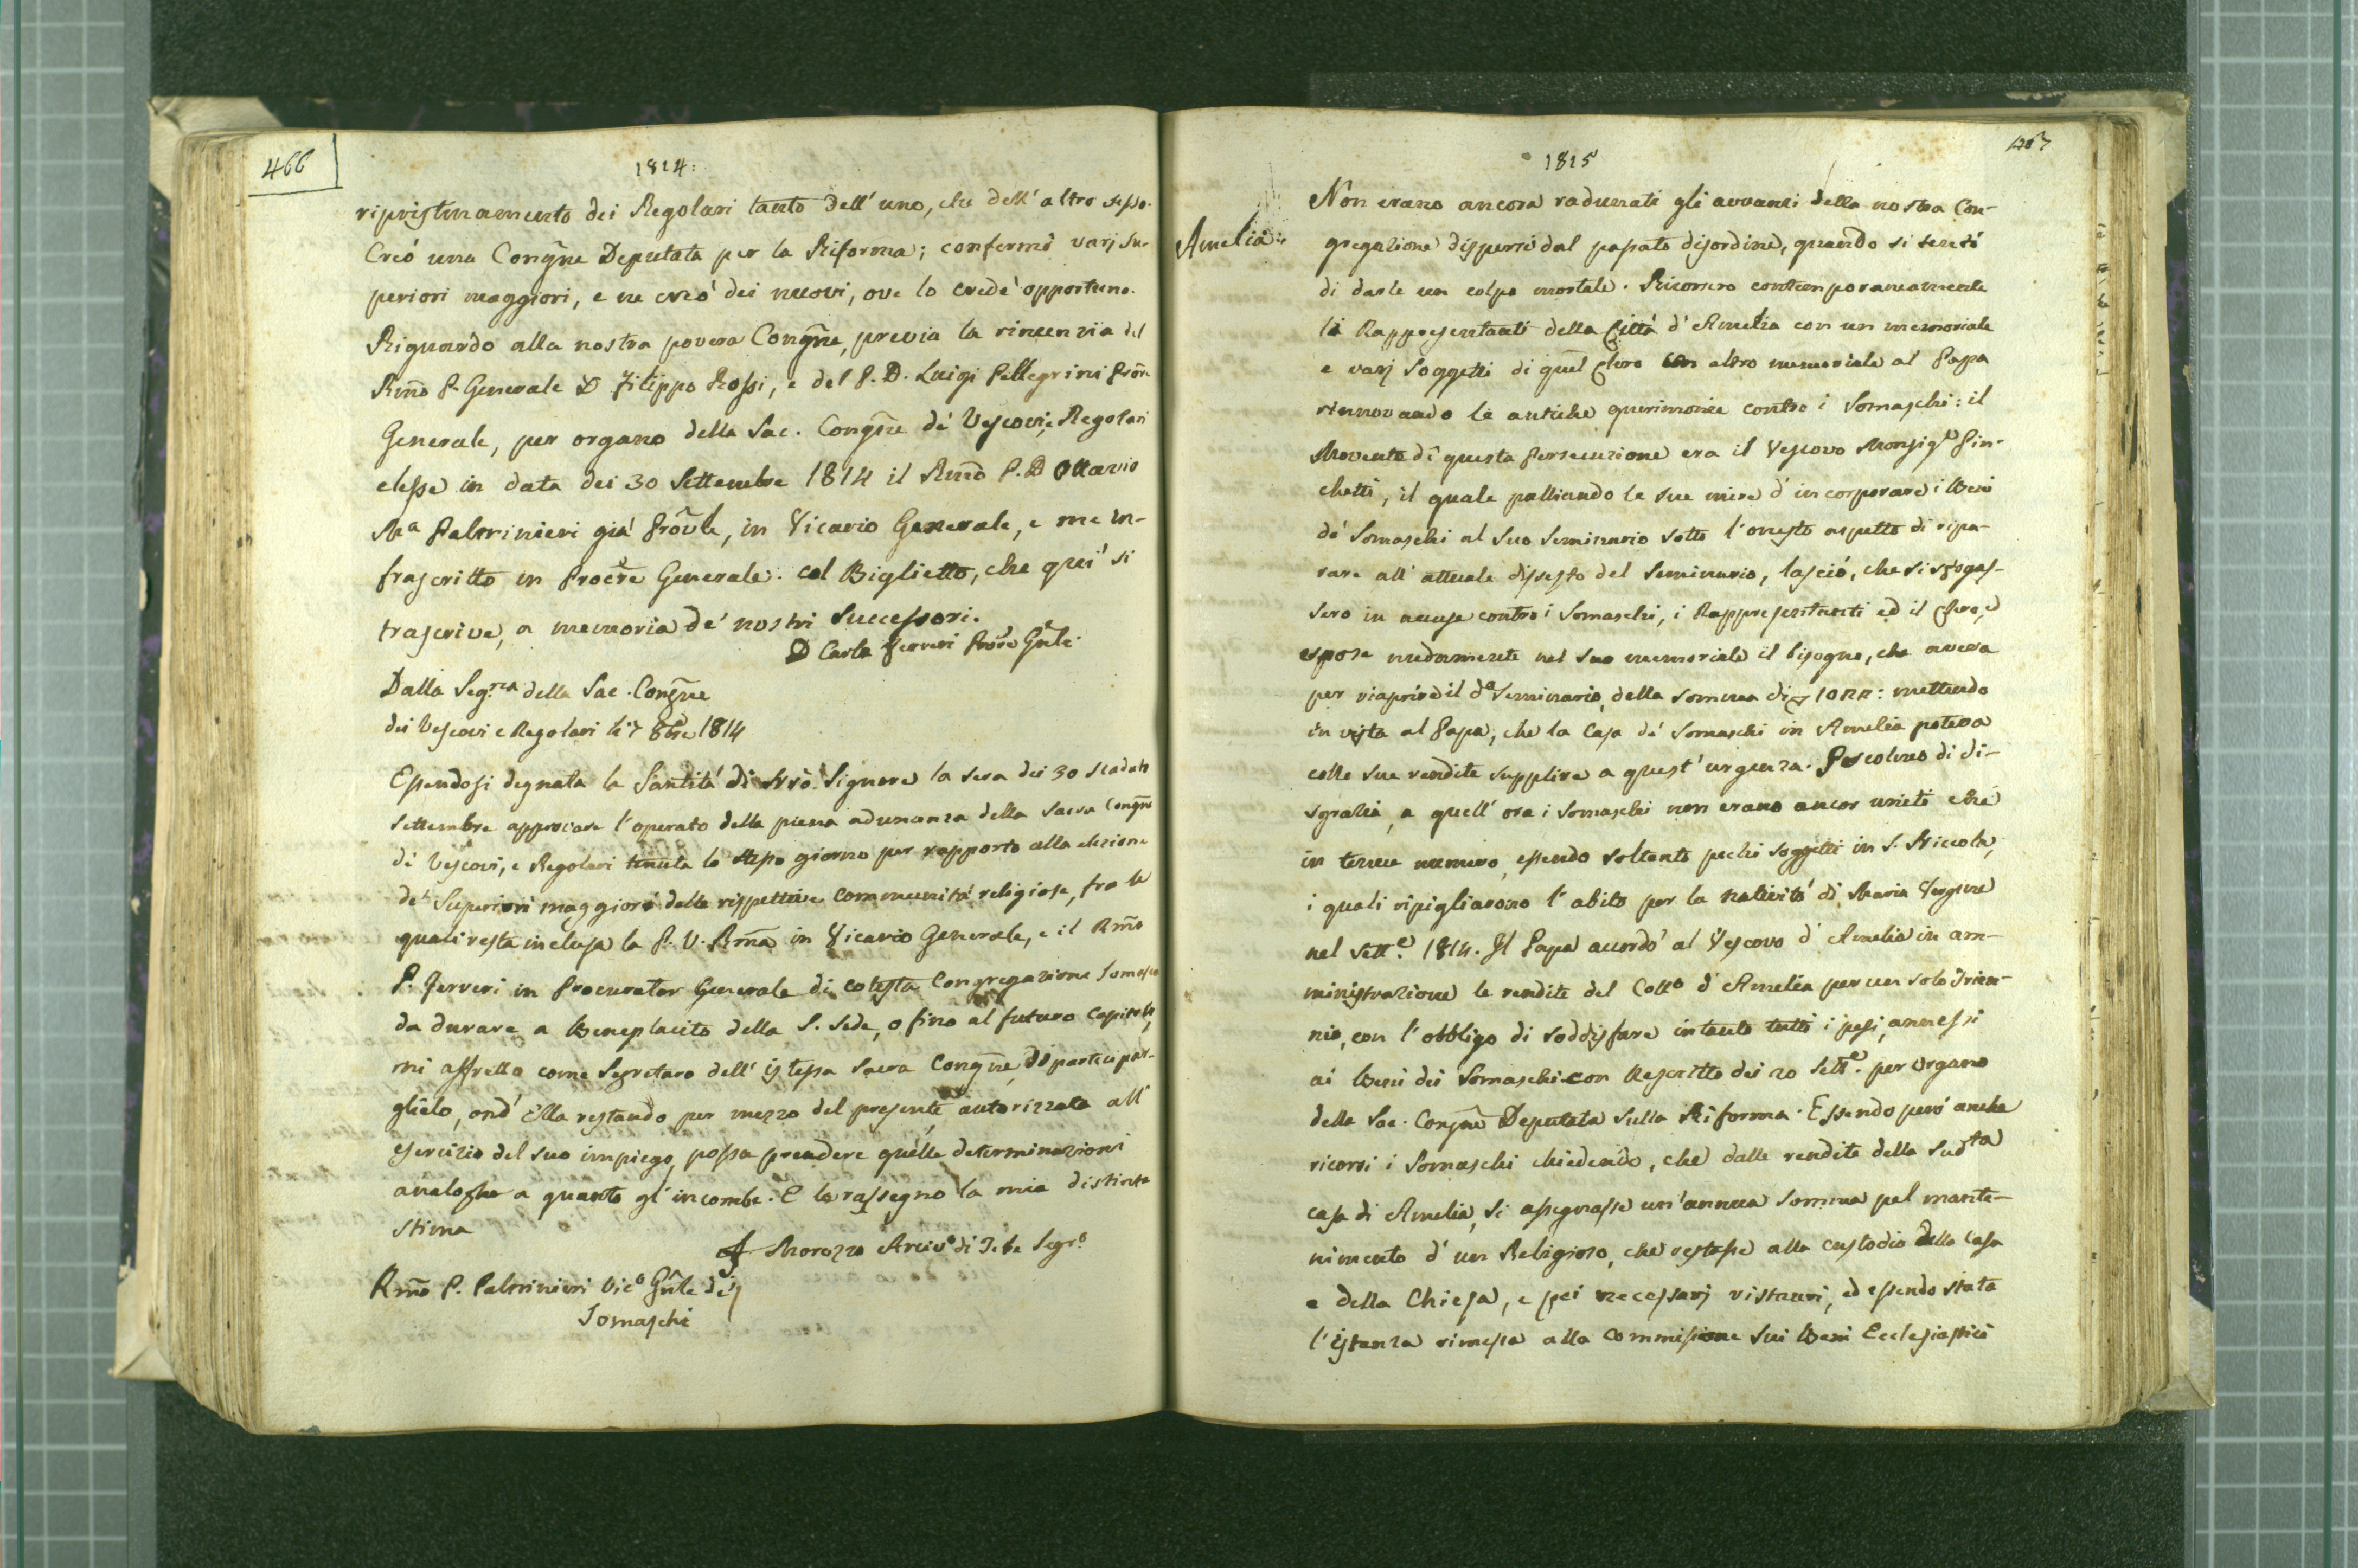 466
1814:
ripristinamento dei Regolari tanto dell' uno, che dell' altro sesso.
Creó una Congñe Deputata per la Riforma; confermò varj Su-
periori maggiori, e ne creó dei nuovi, ove lo credè opportuno.
Riguardo alla nostra povera Congñe, previa la rinunzia del
Rm̃o P. Generale D Filippo Rossi, e del P. D. Luigi Pellegrini
Generale, per organo della Sac. Congñe dè Vescovi, e Regolari
elesse in data dei 30 Settembre 1814 il Rm̃o P. D Ottavio
Mª Paltrinieri già Prov̂le, in Vicario Generale, e me in-
frascritto in Procr̃e Generale. col Biglietto, che quì si
trascrive, a memoria de' nostri Successori.
D Carlo Ferreri Gñle.
Dalla Seg.ria della Sac. Congñe
dei Vescovi e Regolari li 7 8bre 1814
Essendosi degnata la Santità di Nrõ Signore la sera dei 30 scaduto
Settembre approvare l'operato della piena adunanza della Sacra Congñe
di Vescovi, e Regolari tenuta lo stesso giorno per rapporto alla elezione
de' Superiori maggiori delle rispettive communità religiose, fra le
quali resta inclusa la P. V. Rm̃a in Vicario Generale, e il Rm̃o
P. Ferreri in Procurator Generale di cotesta Congregazione Somasca
da durare a Beneplacito della S. Sede, o fino al futuro Capitolo,
mi affretto come Segretaro dell' istessa Sacra Congñe, di partecipar-
glielo, ond' Ella restando per mezzo del presente autorizzata all'
esercizio del suo impiego, possa prendere quelle determinazioni
analoghe a quanto gl' incombe. E la rassegno la mia distinta
stima
Morozzo Arcivº di Tebe Segrº
Rm̃o P. Paltrinieri Vicº Gñle dei
Somaschi
467
1815
Amelia:
Non erano ancora radunati gli avvanzi della nostra Con-
gregazione dispersi dal passato disordine, quando si tentò
di darle un colpo mortale. Ricorsero contemporaneamente
li Rappresentanti della Città d' Amelia con un memoriale
e varj Soggetti di quel Clero con altro memoriale al Papa
rinnovando le antiche querimonie contro i Somaschi: il
Movente di questa Persecuzione era il Vescovo Monsigr Pin-
chetti, il quale palliando le sue mire d' incorporare i Beni
dè Somaschi al Suo Seminario sotto l'onesto aspetto di ripa-
rare all' attuale dissesto del Seminario, lasció, che si sfogas-
sero in accuse contro i Somaschi, i Rappresentanti ed il Clero, e
espose nudamente nel suo memoriale il bisogno, che aveva
per riaprire il dº Seminario, della somma di mettendo
in vista al Papa, che la Casa dè Somaschi in Amelia poteva
colle sue rendite supplire a quest' urgenza. Per colmo di di-
sgrazia, a quell' ora i Somaschi non erano ancor uniti che
in tenue numero, essendo soltanto pochi soggetti in S. Niccola,
i quali ripigliarono l' abito per la natività di Maria Vergine
nel Sett.e 1814. Il Papa accordò al Vescovo d' Amelia in am-
ministrazione le rendite del Collº d' Amelia per un solo Trien-
nio, con l'obbligo di soddisfare intanto tutti i pesi, annessi
ai Beni dei Somaschi con Rescritto dei 20 Sett.e per Organo
della Sac. Congñe Deputata sulla Riforma. Essendo però anche
ricorsi i Somaschi chiedendo, che dalle rendite della Sudta
casa di Amelia, si assegnasse un' annua somma pel mante-
nimento d' un Religioso, che restasse alla custodia della Casa
e della Chiesa, e pei necessarj ristauri, ed essendo stata
l'istanza rimessa alla Commissione Sui Beni Ecclesiastici